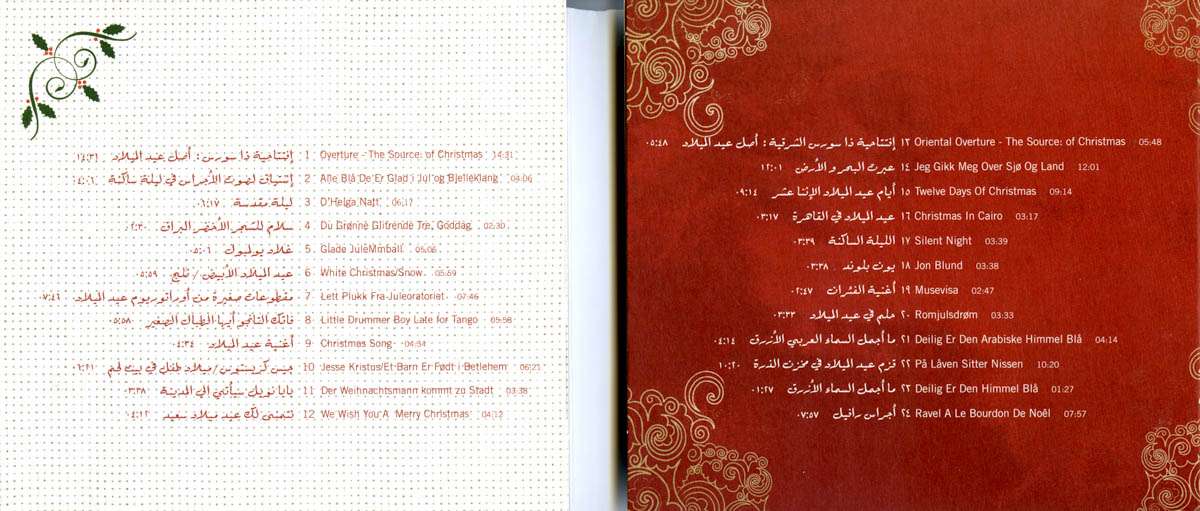 ١٤:٣١ إفتتاحية ذا سورس: أصل عيد الميلاد 1 Overture - The Source: of Christmas 14:31
٠٤:٠٦ إشتياق لصوت الأجراس في ليلة ساكنة 2 Alle Blå De Er Glad i Jul og Bjelleklang 04:06
٠٦:١٧ ليلة مقدسة 3 D'Helga Natt 06:17
٠٢:٣٠ سلام للشجر الأخضر البراق 4 Du Grønne Glitrende Tre, Goddag 02:30
٠٥:٠٦ غلاد يولمبول 5 Glade JuleMmball 05:06
٠٥:٥٩ عيد الميلاد الأبيض / ثلج 6 White Christmas/Snow 05:59
٠٧:٤٦ مقطوعات صغيرة من أوراتوريوم عيد الميلاد 7 Lett Plukk Fra Juleoratoriet 07:46
٠٥:٥٨ فاتك التانجو أيها الطبال الصغير 8 Little Drummer Boy Late for Tango 05:58
٠٤:٣٤ أغنية عيد الميلاد 9 Christmas Song 04:34
٠٦:٢١ جيس كريستوس / ميلاد طفل في بيت لحم 10 Jesse Kristus/Et Barn Er Født i Betlehem 06:21
٠٣:٣٨ بابا نويل سيأتي الى المدينة 11 Der Weihnachtsmann kommt zu Stadt 03:38
٠٤:١٢ نتمنى لك عيد ميلاد سعيد 12 We Wish You A Merry Christmas 04:12
٠٥:٤٨ إفتتاحية ذا سورس الشرقية: أصل عيد الميلاد ١٣ Oriental Overture - The Source: of Christmas 05:48
١٢:٠١ عبرت البحر و الأرض ١٤ Jeg Gikk Meg Over Sjø Og Land 12:01
٠٩:١٤ أيام عيد الميلاد الإثنا عشر ١٥ Twelve Days Of Christmas 09:14
٠٣:١٧ عيد الميلاد في القاهرة ١٦ Christmas In Cairo 03:17
٠٣:٣٩ الليلة الساكنة ١٧ Silent Night 03:39
٠٣:٣٨ يون بلوند ١٨ Jon Blund 03:38
٠٢:٤٧ أغنية الفئران ١٩ Musevisa 02:47
٠٣:٣٣ حلم في عيد الميلاد ٢٠ Romjulsdrøm 03:33
٠٤:١٤ ما أجمل السماء العربي الأزرق ٢١ Deilig Er Den Arabiske Himmel Blå 04:14
١٠:٢٠ قزم عيد الميلاد في مخزن الذرة ٢٢ På Låven Sitter Nissen 10:20
٠١:٢٧ ما أجمل السماء الأزرق ٢٣ Deilig Er Den Himmel Blå 01:27
٠٧:٥٧ أجراس رافيل ٢٤ Ravel A Le Bourdon De Noêl 07:57